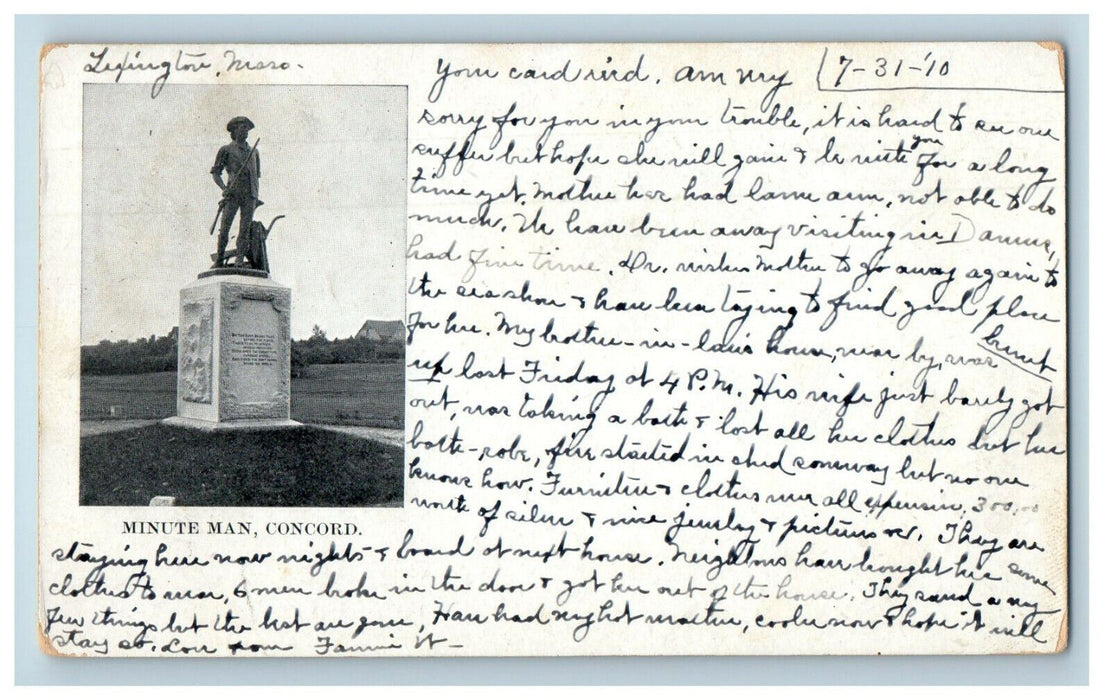 Lexington, Mass.
7-31-'10
Your card rec'd. Am very
sorry for you in your trouble, it is hard to see one
suffer but hope she will gain & be with you for a long
time yet. Mother has had lame arm, not able to do
much. We have been away visiting in Danvers,
had fine time. Dr. wishes Mother to go away again to
the seashore & have been trying to find good place
for her. My brother-in-law's house, near by, was burnt
up last Friday at 4 P.M. His wife just barely got
out, was taking a bath & lost all her clothes but her
bath-robe, fire started in shed someway but no one
knows how. Furniture & clothes were all expensive, 300.00
worth of silver & nice jewelry & pictures etc. They are
MINUTE MAN, CONCORD.
staying here now nights & board at next house. Neighbors have bought her some
clothes to wear, 6 men broke in the door & got her out of the house. They saved a very
few things but the best are gone, Have had very hot weather, cooler now & hope it will
stay so. Love from Fannie H-